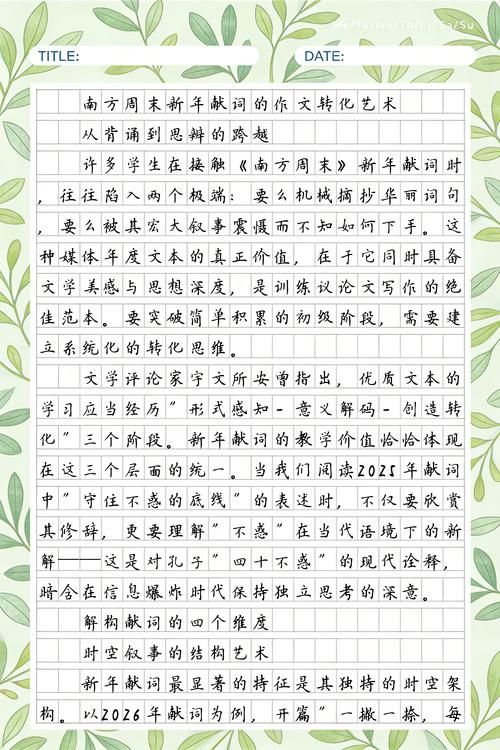 Mo/Tu/We/Th/Fr/Sa/Su
TITLE:
DATE:
南方周末新年献词的作文转化艺术
从背诵到思辨的跨越
许多学生在接触《南方周末》新年献词时
，往往陷入两个极端：要么机械摘抄华丽词句
，要么被其宏大叙事震慑而不知如何下手。这
种媒体年度文本的真正价值，在于它同时具备
文学美感与思想深度，是训练议论文写作的绝
佳范本。要突破简单积累的初级阶段，需要建
立系统化的转化思维。
文学评论家宇文所安曾指出，优质文本的
学习应当经历"形式感知-意义解码-创造转
化"三个阶段。新年献词的教学价值恰恰体现
在这三个层面的统一。当我们阅读2025年献词
中"守住不惑的底线"的表述时，不仅要欣赏
其修辞，更要理解"不惑"在当代语境下的新
解——这是对孔子"四十不惑"的现代诠释，
暗含在信息爆炸时代保持独立思考的深意。
解构献词的四个维度
时空叙事的结构艺术
新年献词最显著的特征是其独特的时空架
构。以2026年献词为例，开篇"一撇一捺，每